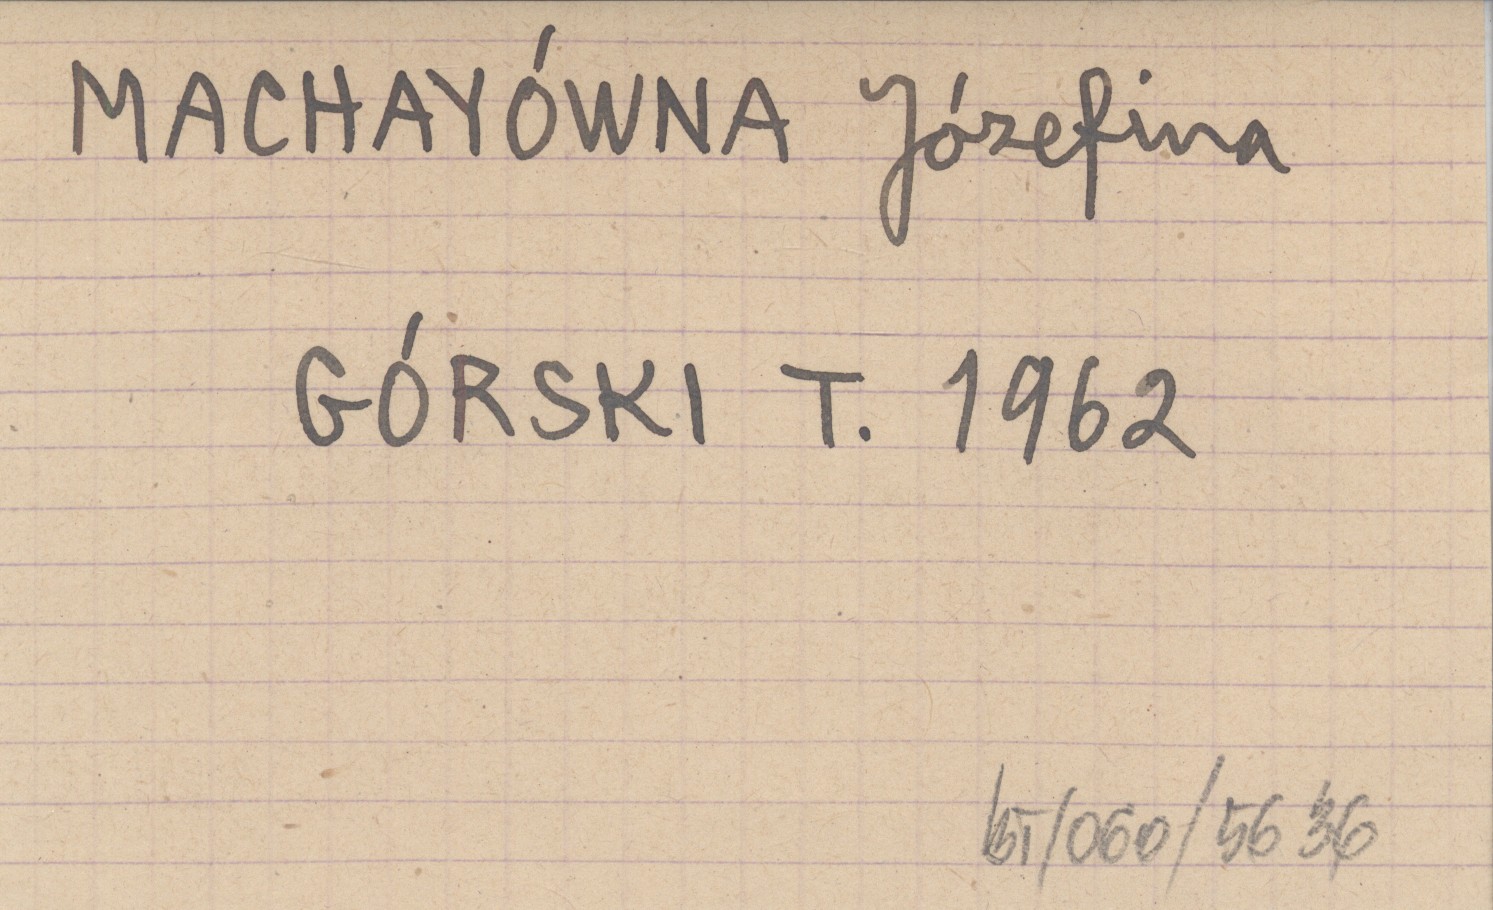 MACHAYÓWNA Józefina
GÓRSKI T. 1962
bT/060/5636